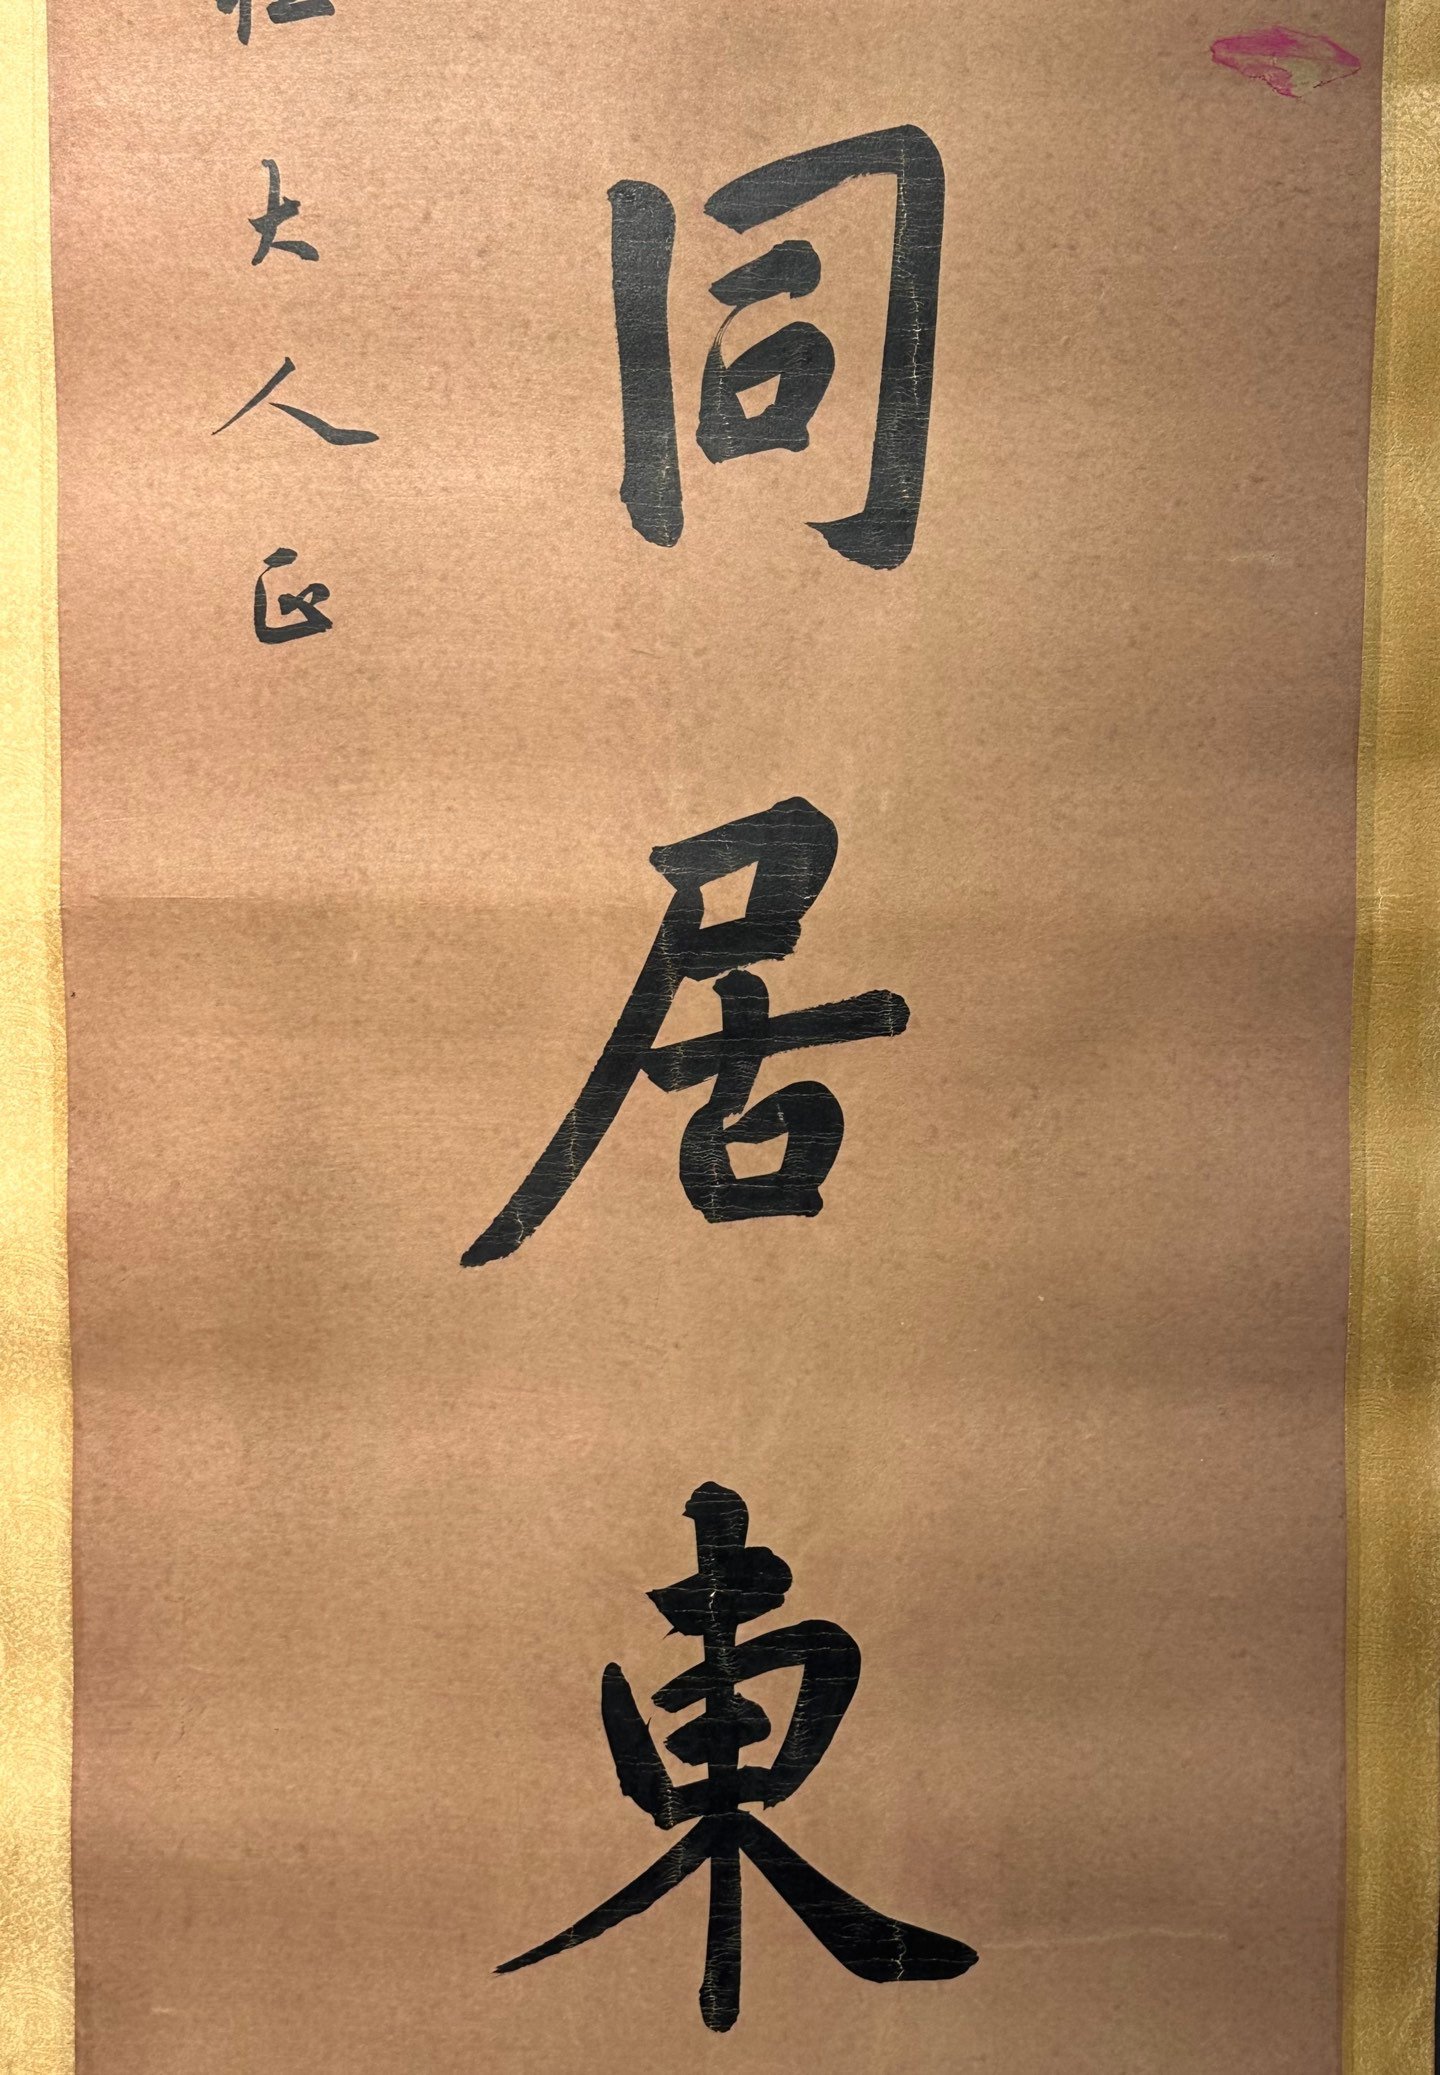 同居東
大人正